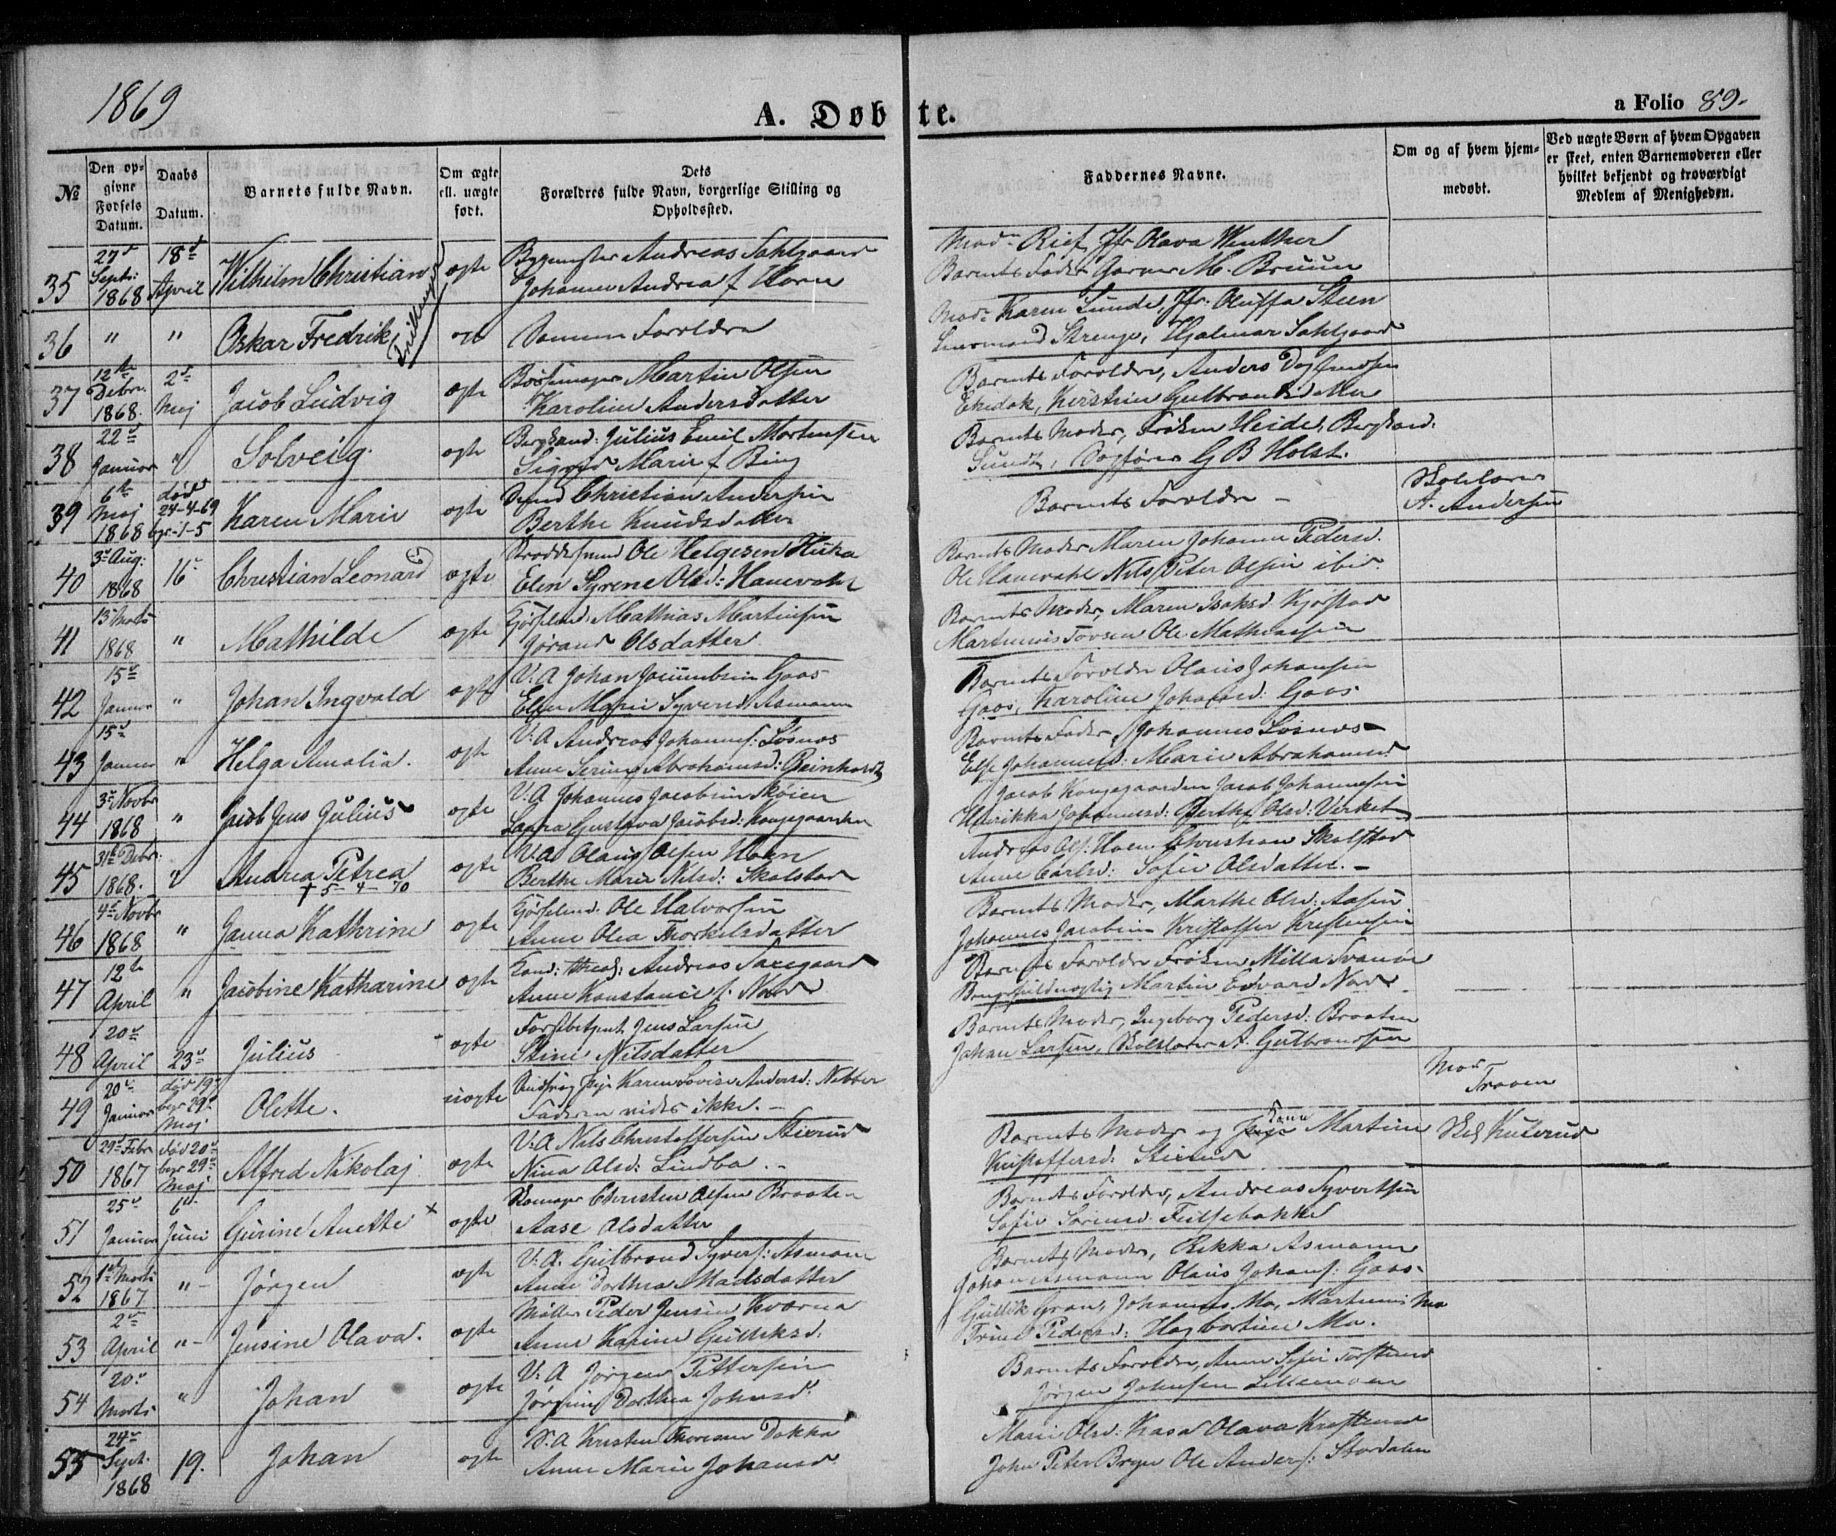 1869
A. Døbte.
a Folio 89.
№
Den opgivne Fødsels Datum.
Daabs Datum.
Barnets fulde Navn.
Om ægte ell. uægte født.
Dets Forældres fulde Navn, borgerlige Stilling og Opholdssted.
Faddernes Navne.
Om og af hvem hjemmedøbt.
Ved uægte Børn af hvem Opgaven er skeet, enten Barnemoderen eller hvilket bekjendt og troværdigt Medlem af Menigheden.
35 27d Septr 1868 18d April Wilhelm Christian Tvillinger ægte Andreas Sahlgaard
Johanne Andrea f Horn
Jfr Olava Winther
Barnets Fader M. Bruun
36 " " Oskar Fredrik ægte Samme Forældre
Karen Sunde, Jfr. Oluffa Steen
Strenge, Hjalmar Sahlgaard
37 12te Debr. 1868. 2d Maj Jacob Ludvig ægte Bøssemager Martin Olsen
Karoline Andersdatter
Barnets Forældre, Anders
Kirstine Gulbrandsdatter
38 22d Januar " Solveig ægte Julius Emil Mortensen
Marie f Bing
Barnets Moder, Frøken
Sundt, Sagfører G B Holst.
39 6te Maj 1868 død 24-4-69 bgr. 1-5 Karen Marie ægte Christian Andersen
Berthe Knudsdatter
Barnets Forældre – Skolelærer
A. Andersen
40 3d Aug: 1868 16d Christian Leonard ægte Ole Helgesen Huka
Elen Syrene Olsd: Hanevahl
Barnets Moder Maren Johanne Pedersd.
Ole Hanevahl Nils Peter Olsen ibid.
41 13d Marts 1868 " Mathilde ægte Mathias Martinsen
Jørand Olsdatter
Barnets Moder, Maren Isaksd
Martinius Tovsen Ole Mathiassen
42 15d Januar " Johan Ingvald ægte V: A Johan Gaas
Else Marie Syversd Asmann
Barnets Forældre Olaus Johansen
Gaas, Karoline Johansd: Gaas
43 15d Januar " Helga Amalia. ægte V: A Andreas Johannes: Løsnæs
Anne Serine Abrahamsd:
Barnets Fader, Johannes Løsnæs
Else Johannesd: Marie Abrahamsd
44 3d Novbr 1868 " Jacob Jens Julius ægte V: A Johannes Jacobsen Skøien
Laura Gustava Jacobsd: Kongsgaarden
Jacob Kongsgaarden Jacob Johannesen
Henrikka Johannesd: Berthe Olsd: Virket
45 31te Debr. 1868. " Andrea Petrea † 5–4–70 ægte V: A Olaus Olsen Hoen
Berthe Marie Nilsd: Skolstad
Andreas Ols: Hoen Christian Skolstad
Anne Carlsd: Sofie Olsdatter. –
46 4de Novbr 1868 " Janna Kathrine ægte Ole Halvorsen
Anne Olea Thorkelsdatter
Barnets Moder, Marthe Olsd: Aasen
Johannes Jacobsen Kristoffer Kristensen
47 12te April " Jacobine Katharine ægte Kand: theol: Andreas Faxegaard
Anne Konstance f.
Barnets Forældre Frøken Milla Svanøe
Martin Edvard
48 20d April 23d Julius ægte Jens Larsen
Stine Nilsdatter
Barnets Moder, Ingeborg Pedersd: Braaten
Johan Larsen, Skolelærer A. Gulbrandsen
49 20d Januar død 19d bgr 29d Maj Olette. uægte Pige Karen Lovise Andersd:
Faderen vides ikke. –
50 29d Febr 1867 død 20d bgr 29d Maj Alfred Nikolaj ægte V: A Nils Christoffersen Stixrud
Nina Olsd: Lindbo. –
Barnets Moder og Kone Martine
Kristoffersd: Stixrud
51 25d Januar 6d Juni Gurine Anette × ægte Skomager Christen Olsen Braaten
Aase Olsdatter
Barnets Forældre, Andreas Syvertsen
Sofie Sørensd:
52 1ste Marts 1867 " – Jørgen ægte V: A. Gulbrand Syvers: Asmann
Anne Dorthea Madsdatter
Barnets Moder, Rikka Asmann
Johan Asmann Olaus Johans: Gaas.
53 2d April " – Jensine Olava. ægte Møller Peder Jensen Kværna
Anne Karine Gulliksd:
Gullik Gran, Johannes Mo, Martinius Mo
Pedersd: Hagbartine Mo.
54 20d Marts " Johan ægte V: A Jørgen Pettersen
Jørgine Dorthea Johnsd:
Barnets Forældre, Anne Sofie
Jørgen Johnsen Lillemoen
55 24d Sept. 1868 19. Johan ægte V. A Kristen Thoresen Dokka
Anne Marie Johansd
Marie Olsd: Kasa Olava
John Peter Bryn Ole Anders: Stordalen